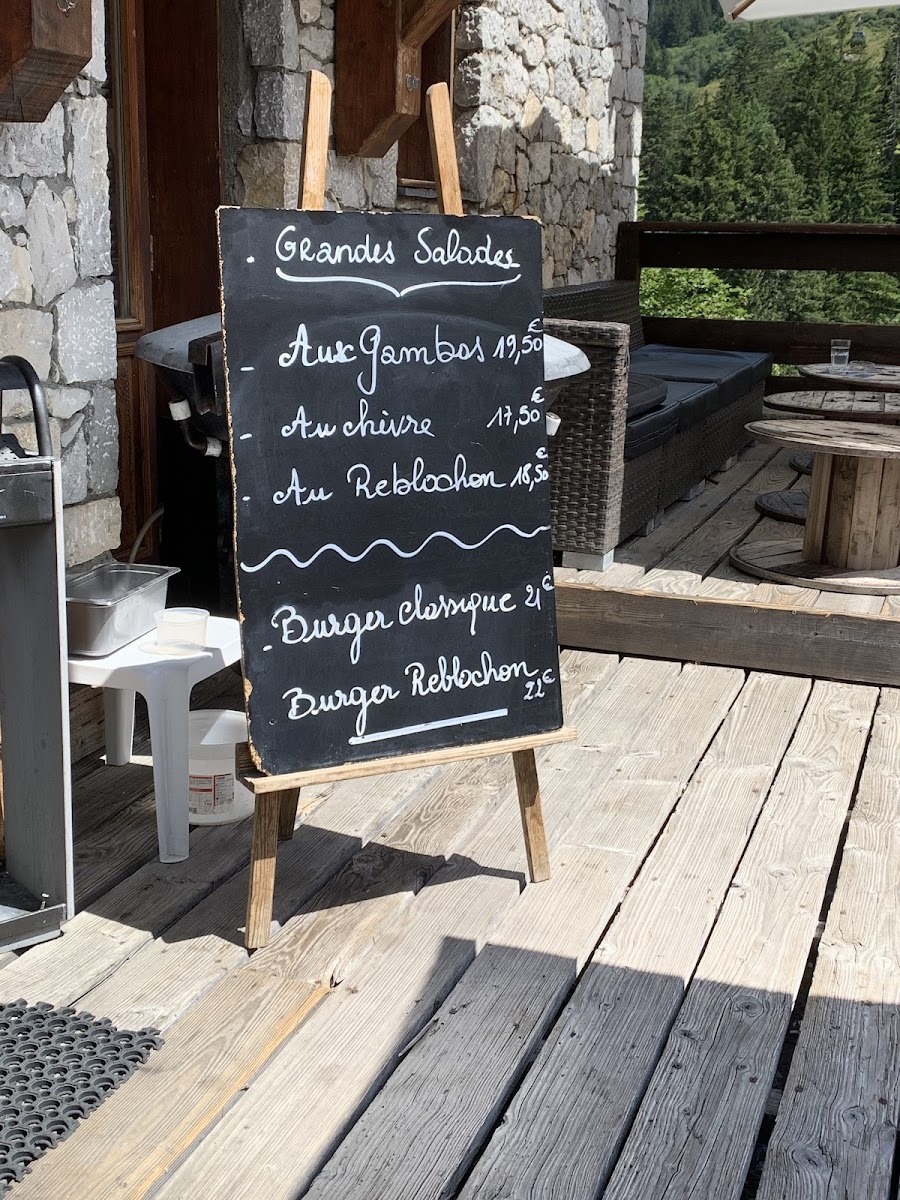 . Grandes Salades
- Aux Gambas 19,50€
- Au chèvre 17,50€
- Au Reblochon 18,50€
- Burger classique 21€
Burger Reblochon 22€